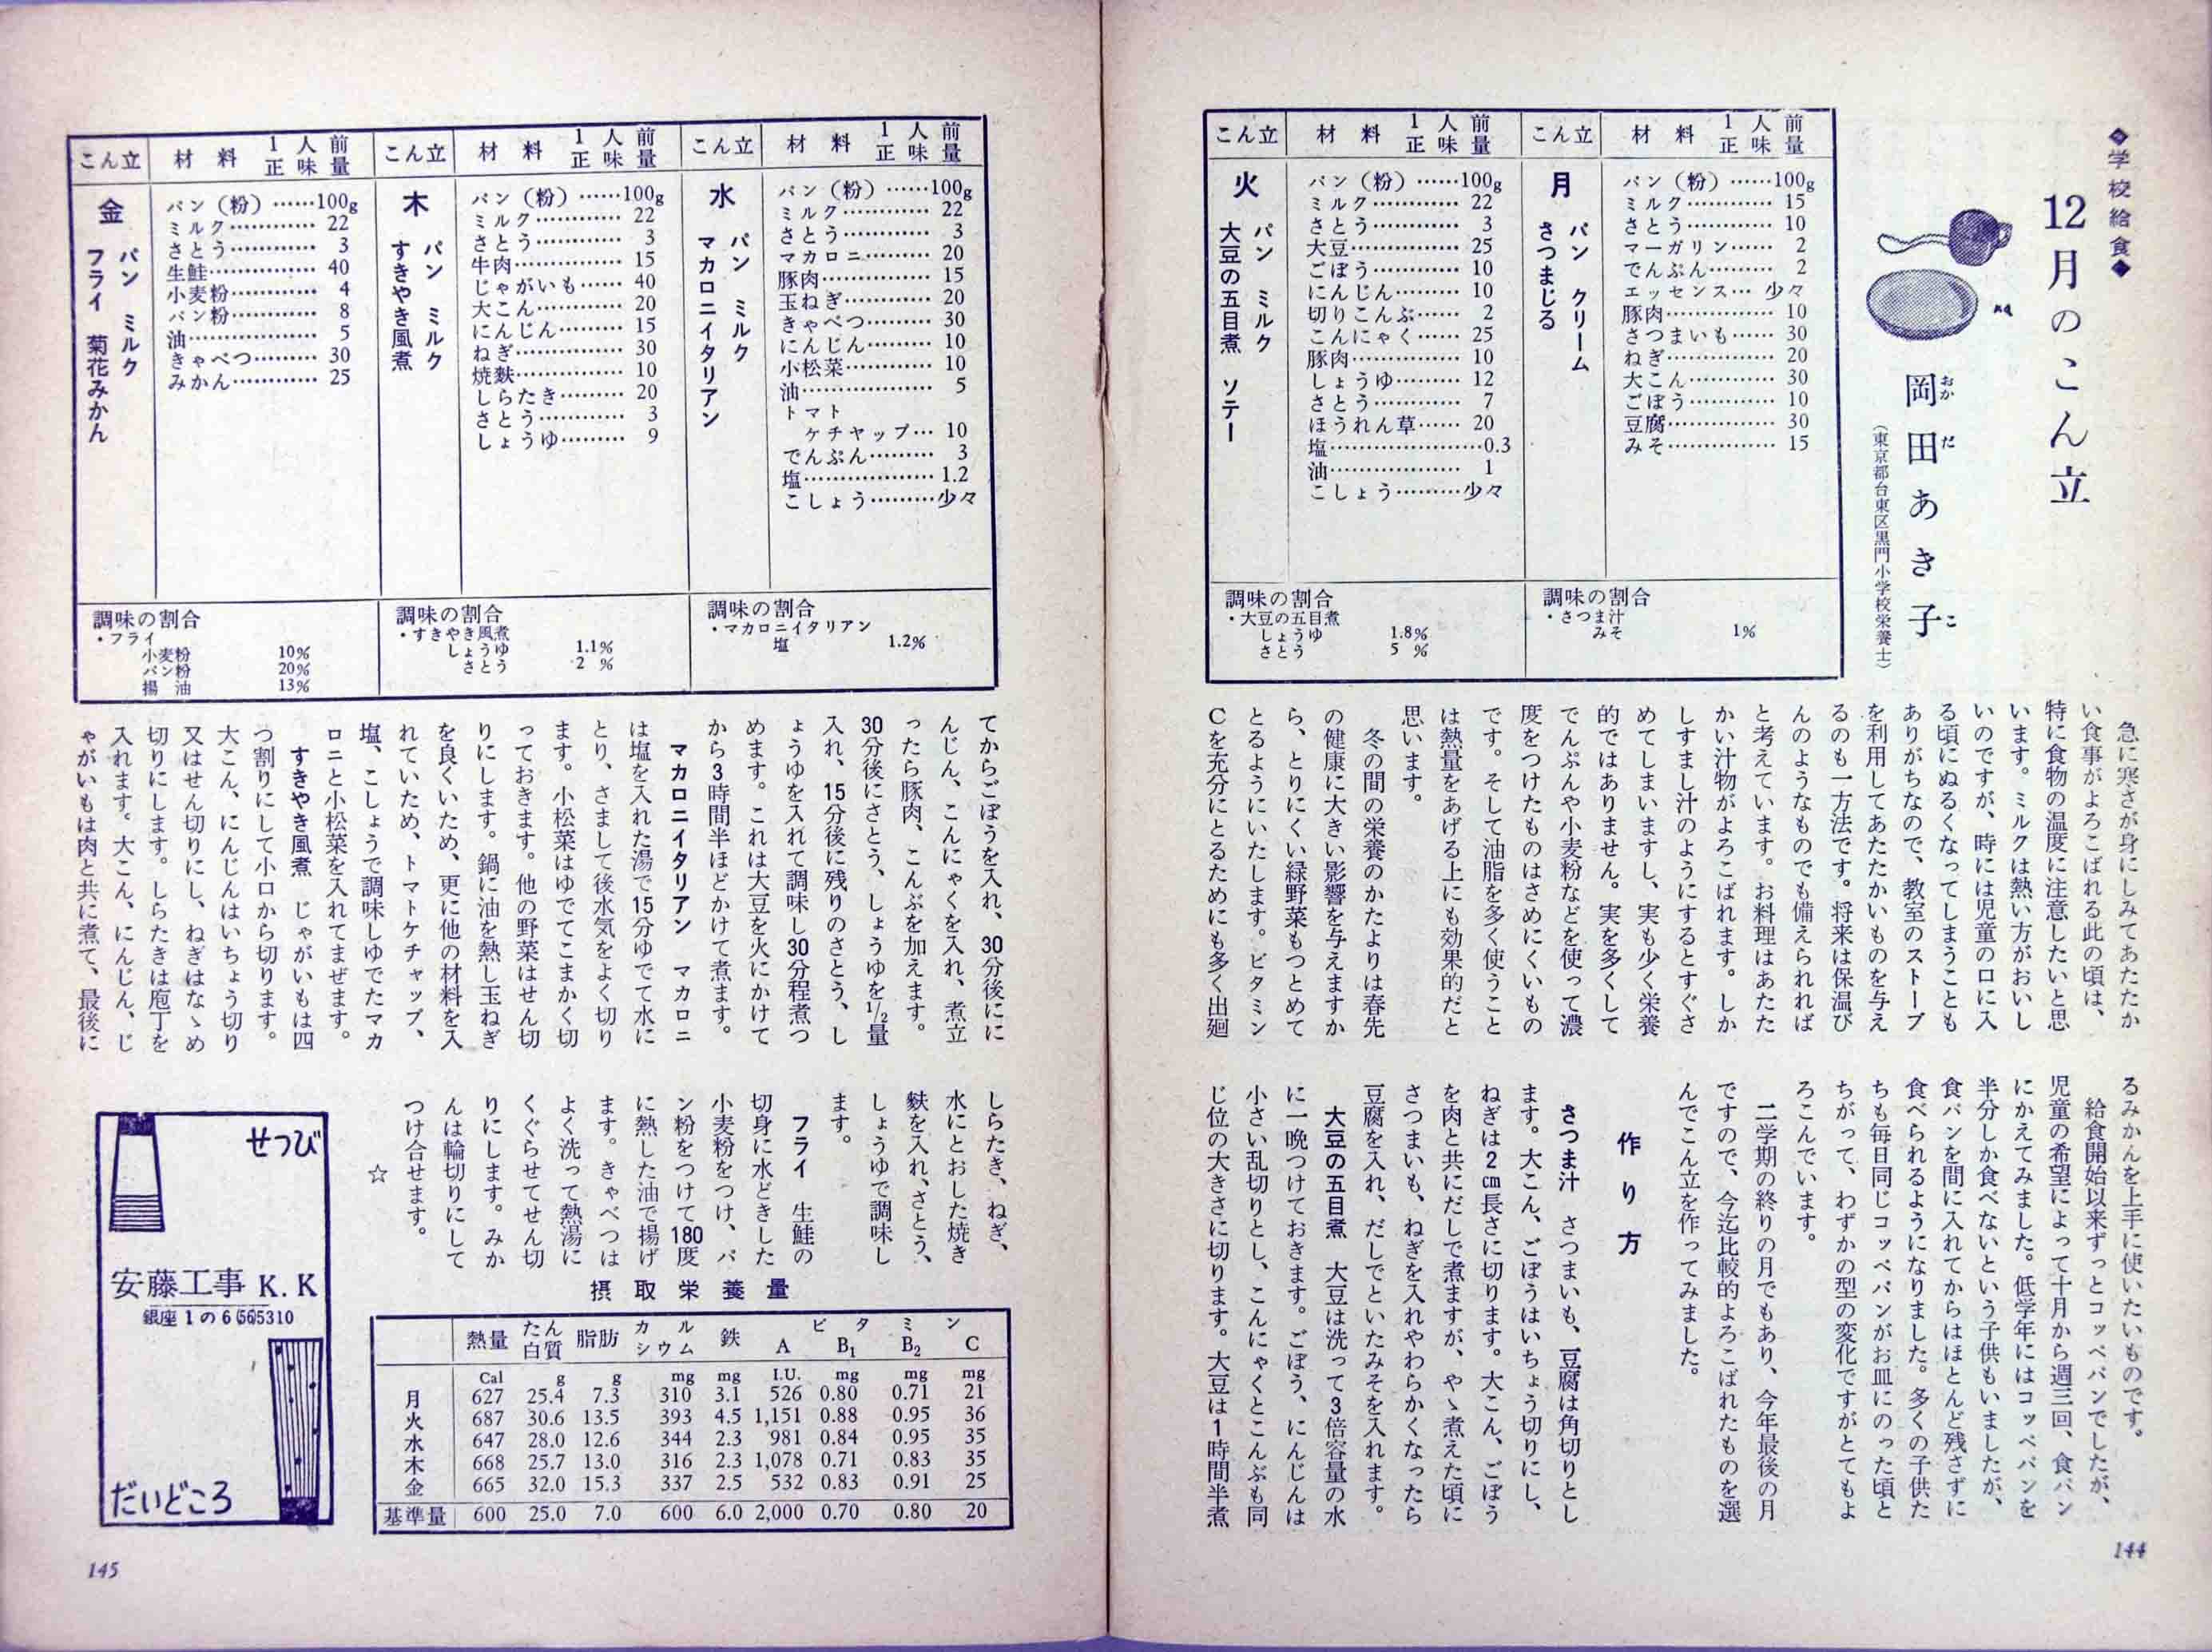 ◆学校給食◆
12月のこん立
岡田あき子
おかだこ
(東京都台東区黒門小学校栄養士)
こん立 材料 1人前正味量 こん立 材料 1人前正味量
月
パン クリーム
さつまじる
パン（粉）……100g
ミルク…………15
さとう…………10
マーガリン……2
でんぷん………2
エッセンス…少々
豚肉……………10
さつまいも……30
ねぎ……………20
大こん…………30
ごぼう…………10
豆腐……………30
みそ……………15
調味の割合
・さつま汁
みそ 1%
火
パン ミルク
大豆の五目煮 ソテー
パン（粉）……100g
ミルク…………22
さとう…………3
大豆……………25
ごぼう…………10
にんじん………10
切りこんぶ……2
こんにゃく……25
豚肉……………10
しょうゆ………12
さとう…………7
ほうれん草……20
塩…………………0.3
油………………1
こしょう………少々
調味の割合
・大豆の五目煮
しょうゆ 1.8%
さとう 5 %
急に寒さが身にしみてあたたか
い食事がよろこばれる此の頃は、
特に食物の温度に注意したいと思
います。ミルクは熱い方がおいし
いのですが、時には児童の口に入
る頃にぬるくなってしまうことも
ありがちなので、教室のストーブ
を利用してあたたかいものを与え
るのも一方法です。将来は保温び
んのようなものでも備えられれば
と考えています。お料理はあたた
かい汁物がよろこばれます。しか
しすまし汁のようにするとすぐさ
めてしまいますし、実も少く栄養
的ではありません。実を多くして
でんぷんや小麦粉などを使って濃
度をつけたものはさめにくいもの
です。そして油脂を多く使うこと
は熱量をあげる上にも効果的だと
思います。
冬の間の栄養のかたよりは春先
の健康に大きい影響を与えますか
ら、とりにくい緑野菜もつとめて
とるようにいたします。ビタミン
Cを充分にとるためにも多く出廻
るみかんを上手に使いたいものです。
給食開始以来ずっとコッペパンでしたが、
児童の希望によって十月から週三回、食パン
にかえてみました。低学年にはコッペパンを
半分しか食べないという子供もいましたが、
食パンを間に入れてからはほとんど残さずに
食べられるようになりました。多くの子供た
ちも毎日同じコッペパンがお皿にのった頃と
ちがって、わずかの型の変化ですがとてもよ
ろこんでいます。
二学期の終りの月でもあり、今年最後の月
ですので、今迄比較的よろこばれたものを選
んでこん立を作ってみました。
作り方
さつま汁 さつまいも、豆腐は角切りとし
ます。大こん、ごぼうはいちょう切りにし、
ねぎは2㎝長さに切ります。大こん、ごぼう
を肉と共にだしで煮ますが、やゝ煮えた頃に
さつまいも、ねぎを入れやわらかくなったら
豆腐を入れ、だしでといたみそを入れます。
大豆の五目煮 大豆は洗って3倍容量の水
に一晩つけておきます。ごぼう、にんじんは
小さい乱切りとし、こんにゃくとこんぶも同
じ位の大きさに切ります。大豆は1時間半煮
144
こん立 材料 1人前正味量 こん立 材料 1人前正味量 こん立 材料 1人前正味量
水
パン ミルク
マカロニイタリアン
パン（粉）……100g
ミルク…………22
さとう…………3
マカロニ………20
豚肉……………15
玉ねぎ…………20
きゃべつ………30
にんじん………10
小松菜…………10
油………………5
トマト
ケチヤップ…10
でんぷん………3
塩………………1.2
こしょう………少々
調味の割合
・マカロニイタリアン
塩 1.2%
木
パン ミルク
すきやき風煮
パン（粉）……100g
ミルク…………22
さとう…………3
牛肉……………15
じゃがいも……40
大こん…………20
にんじん………15
ねぎ……………30
焼麩……………10
しらたき………20
さとう…………3
しょうゆ………9
調味の割合
・すきやき風煮
しょうゆ 1.1%
さとう 2 %
金
パン ミルク
フライ 菊花みかん
パン（粉）……100g
ミルク…………22
さとう…………3
生鮭……………40
小麦粉…………4
パン粉…………8
油………………5
きゃべつ………30
みかん…………25
調味の割合
・フライ
小麦粉 10%
パン粉 20%
揚油 13%
てからごぼうを入れ、30分後にに
んじん、こんにゃくを入れ、煮立
ったら豚肉、こんぶを加えます。
30分後にさとう、しょうゆを½量
入れ、15分後に残りのさとう、し
ょうゆを入れて調味し30分程煮つ
めます。これは大豆を火にかけて
から3時間半ほどかけて煮ます。
マカロニイタリアン マカロニ
は塩を入れた湯で15分ゆでて水に
とり、さまして後水気をよく切り
ます。小松菜はゆでてこまかく切
っておきます。他の野菜はせん切
りにします。鍋に油を熱し玉ねぎ
を良くいため、更に他の材料を入
れていため、トマトケチャップ、
塩、こしょうで調味しゆでたマカ
ロニと小松菜を入れてまぜます。
すきやき風煮 じゃがいもは四
つ割りにして小口から切ります。
大こん、にんじんはいちょう切り
又はせん切りにし、ねぎはなゝめ
切りにします。しらたきは庖丁を
入れます。大こん、にんじん、じ
ゃがいもは肉と共に煮て、最後に
しらたき、ねぎ、
水にとおした焼き
麩を入れ、さとう、
しょうゆで調味し
ます。
フライ 生鮭の
切身に水どきした
小麦粉をつけ、パ
ン粉をつけて180度
に熱した油で揚げ
ます。きゃべつは
よく洗って熱湯に
くぐらせてせん切
りにします。みか
んは輪切りにして
つけ合せます。
☆
摂取栄養量
熱量 たん白質 脂肪 カルシウム 鉄 ビタミン
A B1 B2 C
Cal g g mg mg I.U. mg mg mg
月 627 25.4 7.3 310 3.1 526 0.80 0.71 21
火 687 30.6 13.5 393 4.5 1,151 0.88 0.95 36
水 647 28.0 12.6 344 2.3 981 0.84 0.95 35
木 668 25.7 13.0 316 2.3 1,078 0.71 0.83 35
金 665 32.0 15.3 337 2.5 532 0.83 0.91 25
基準量 600 25.0 7.0 600 6.0 2,000 0.70 0.80 20
せつび
安藤工事 K.K
銀座1の6
だいどころ
145